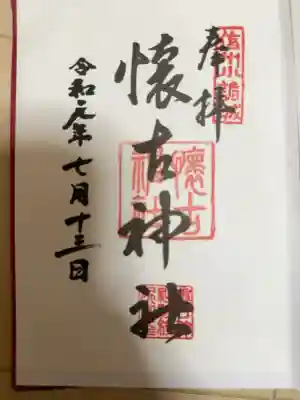 信州小諸城
奉拝
懐古神社
懐古
神社
令和元年七月十三日